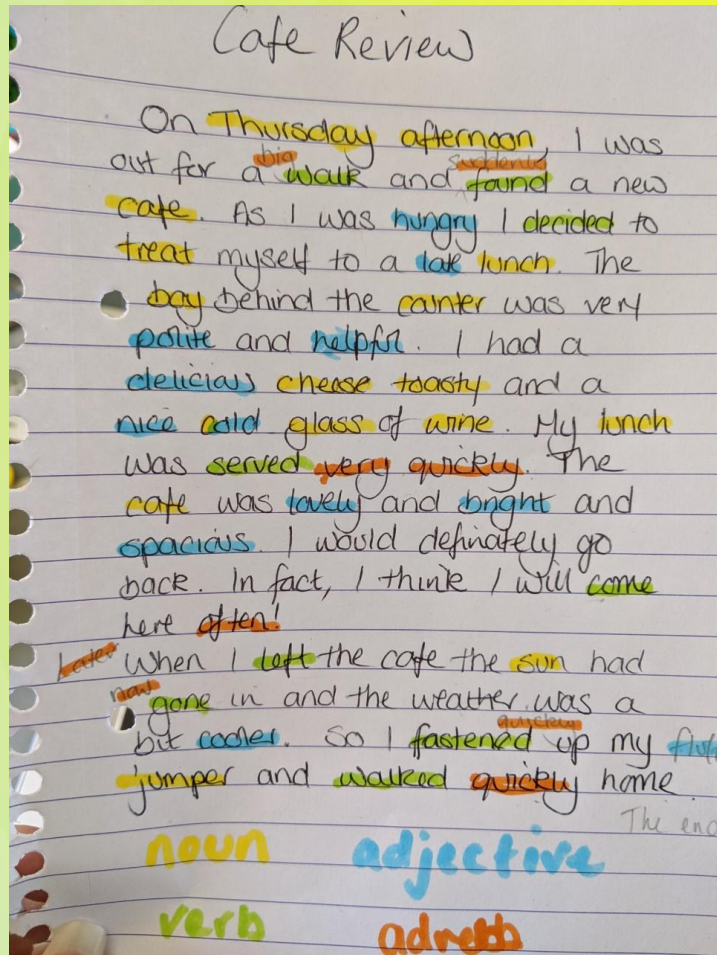 Cafe Review
On Thursday afternoon, I was
big suddenly
out for a walk and found a new
cafe. As I was hungry I decided to
treat myself to a late lunch. The
boy behind the counter was very
polite and helpful. I had a
delicious cheese toasty and a
nice cold glass of wine. My lunch
was served very quickly. The
cafe was lovely and bright and
spacious. I would definately go
back. In fact, I think I will come
here often!
Later When I left the cafe the sun had
now
gone in and the weather was a
quickly
bit cooler. So I fastened up my
jumper and walked quickly home
The end
noun adjective
verb